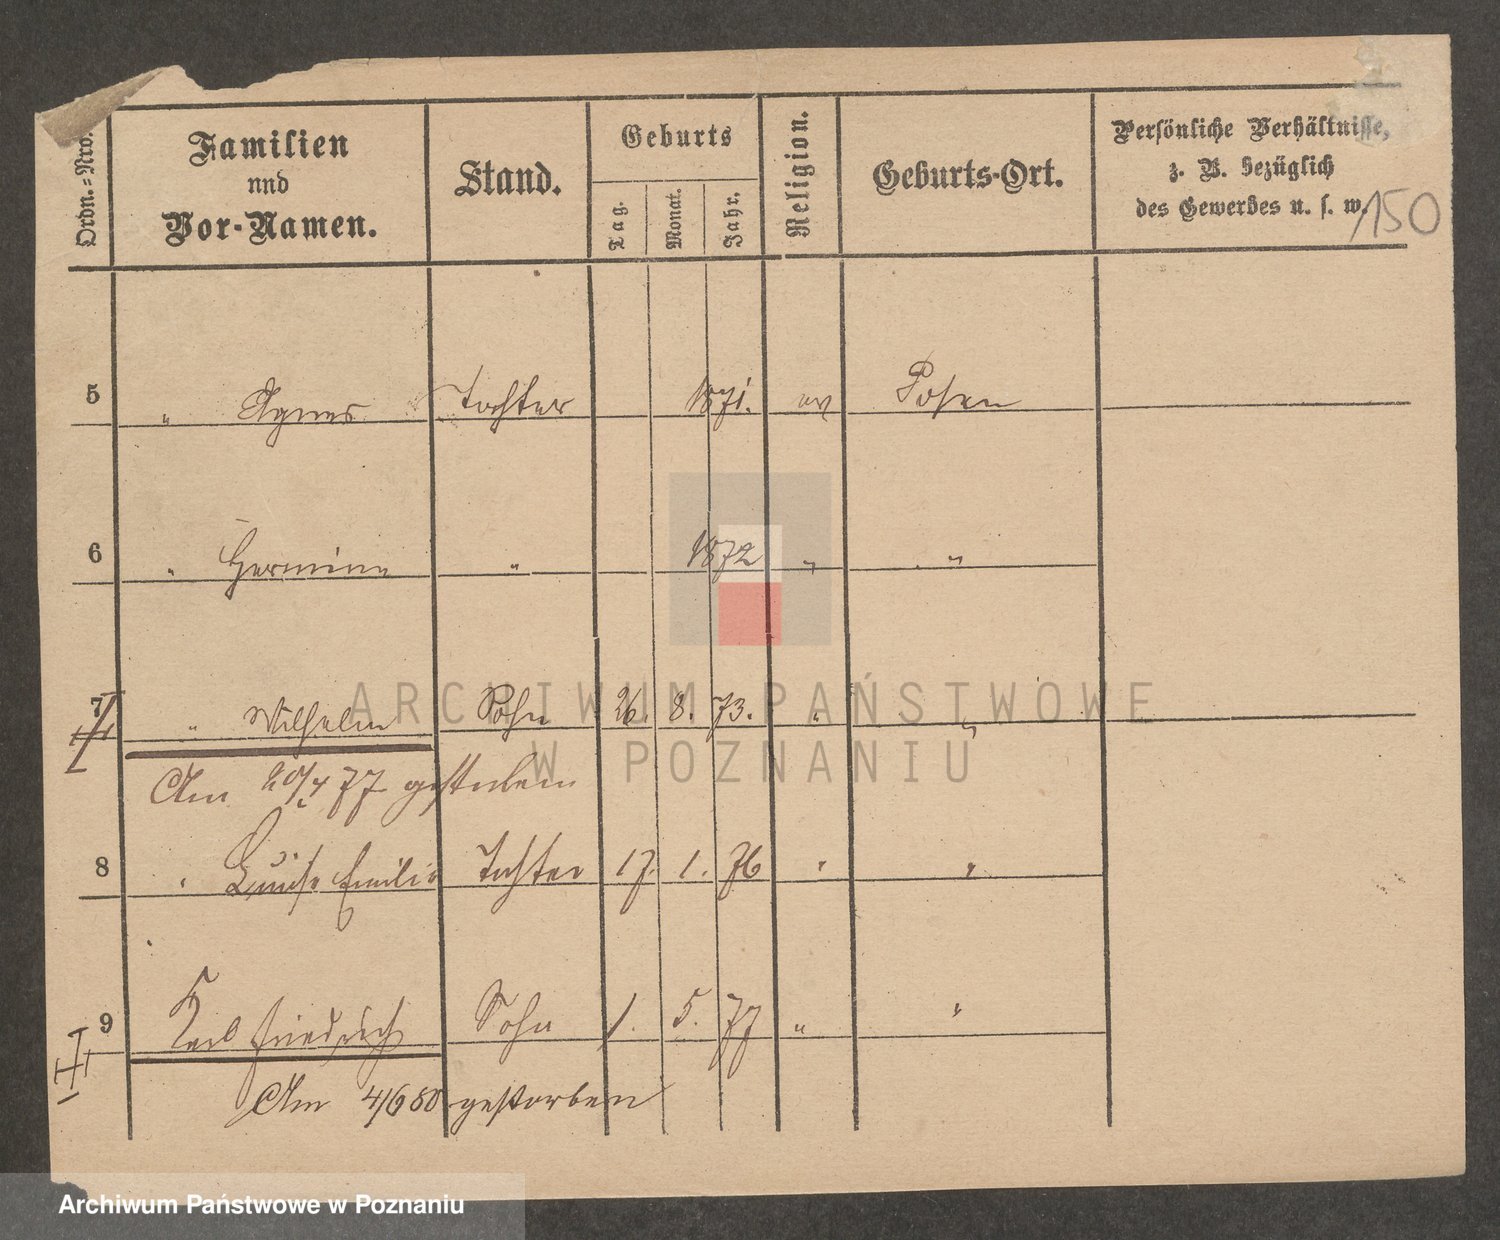 Ordn.=Nro.
Familien
und
Vor-Namen.
Stand.
Geburts
Tag.
Monat.
Jahr.
Religion.
Geburts-Ort.
Persönliche Verhältnisse,
z. B. bezüglich
des Gewerbes u. s. w.
150
5 " Agnes Tochter 1871. ev Posen
6 " Hermine " 1872 " "
7 " Wilhelm Sohn 26. 8. 73. " "
Am 20/4 77 gestorben
8 " Louise Emilie Tochter 17. 1. 76 " "
9 Karl Friedrich Sohn 1. 5. 77 " "
Am 4/6 80 gestorben
ARCHIWUM PAŃSTWOWE
W POZNANIU
Archiwum Państwowe w Poznaniu